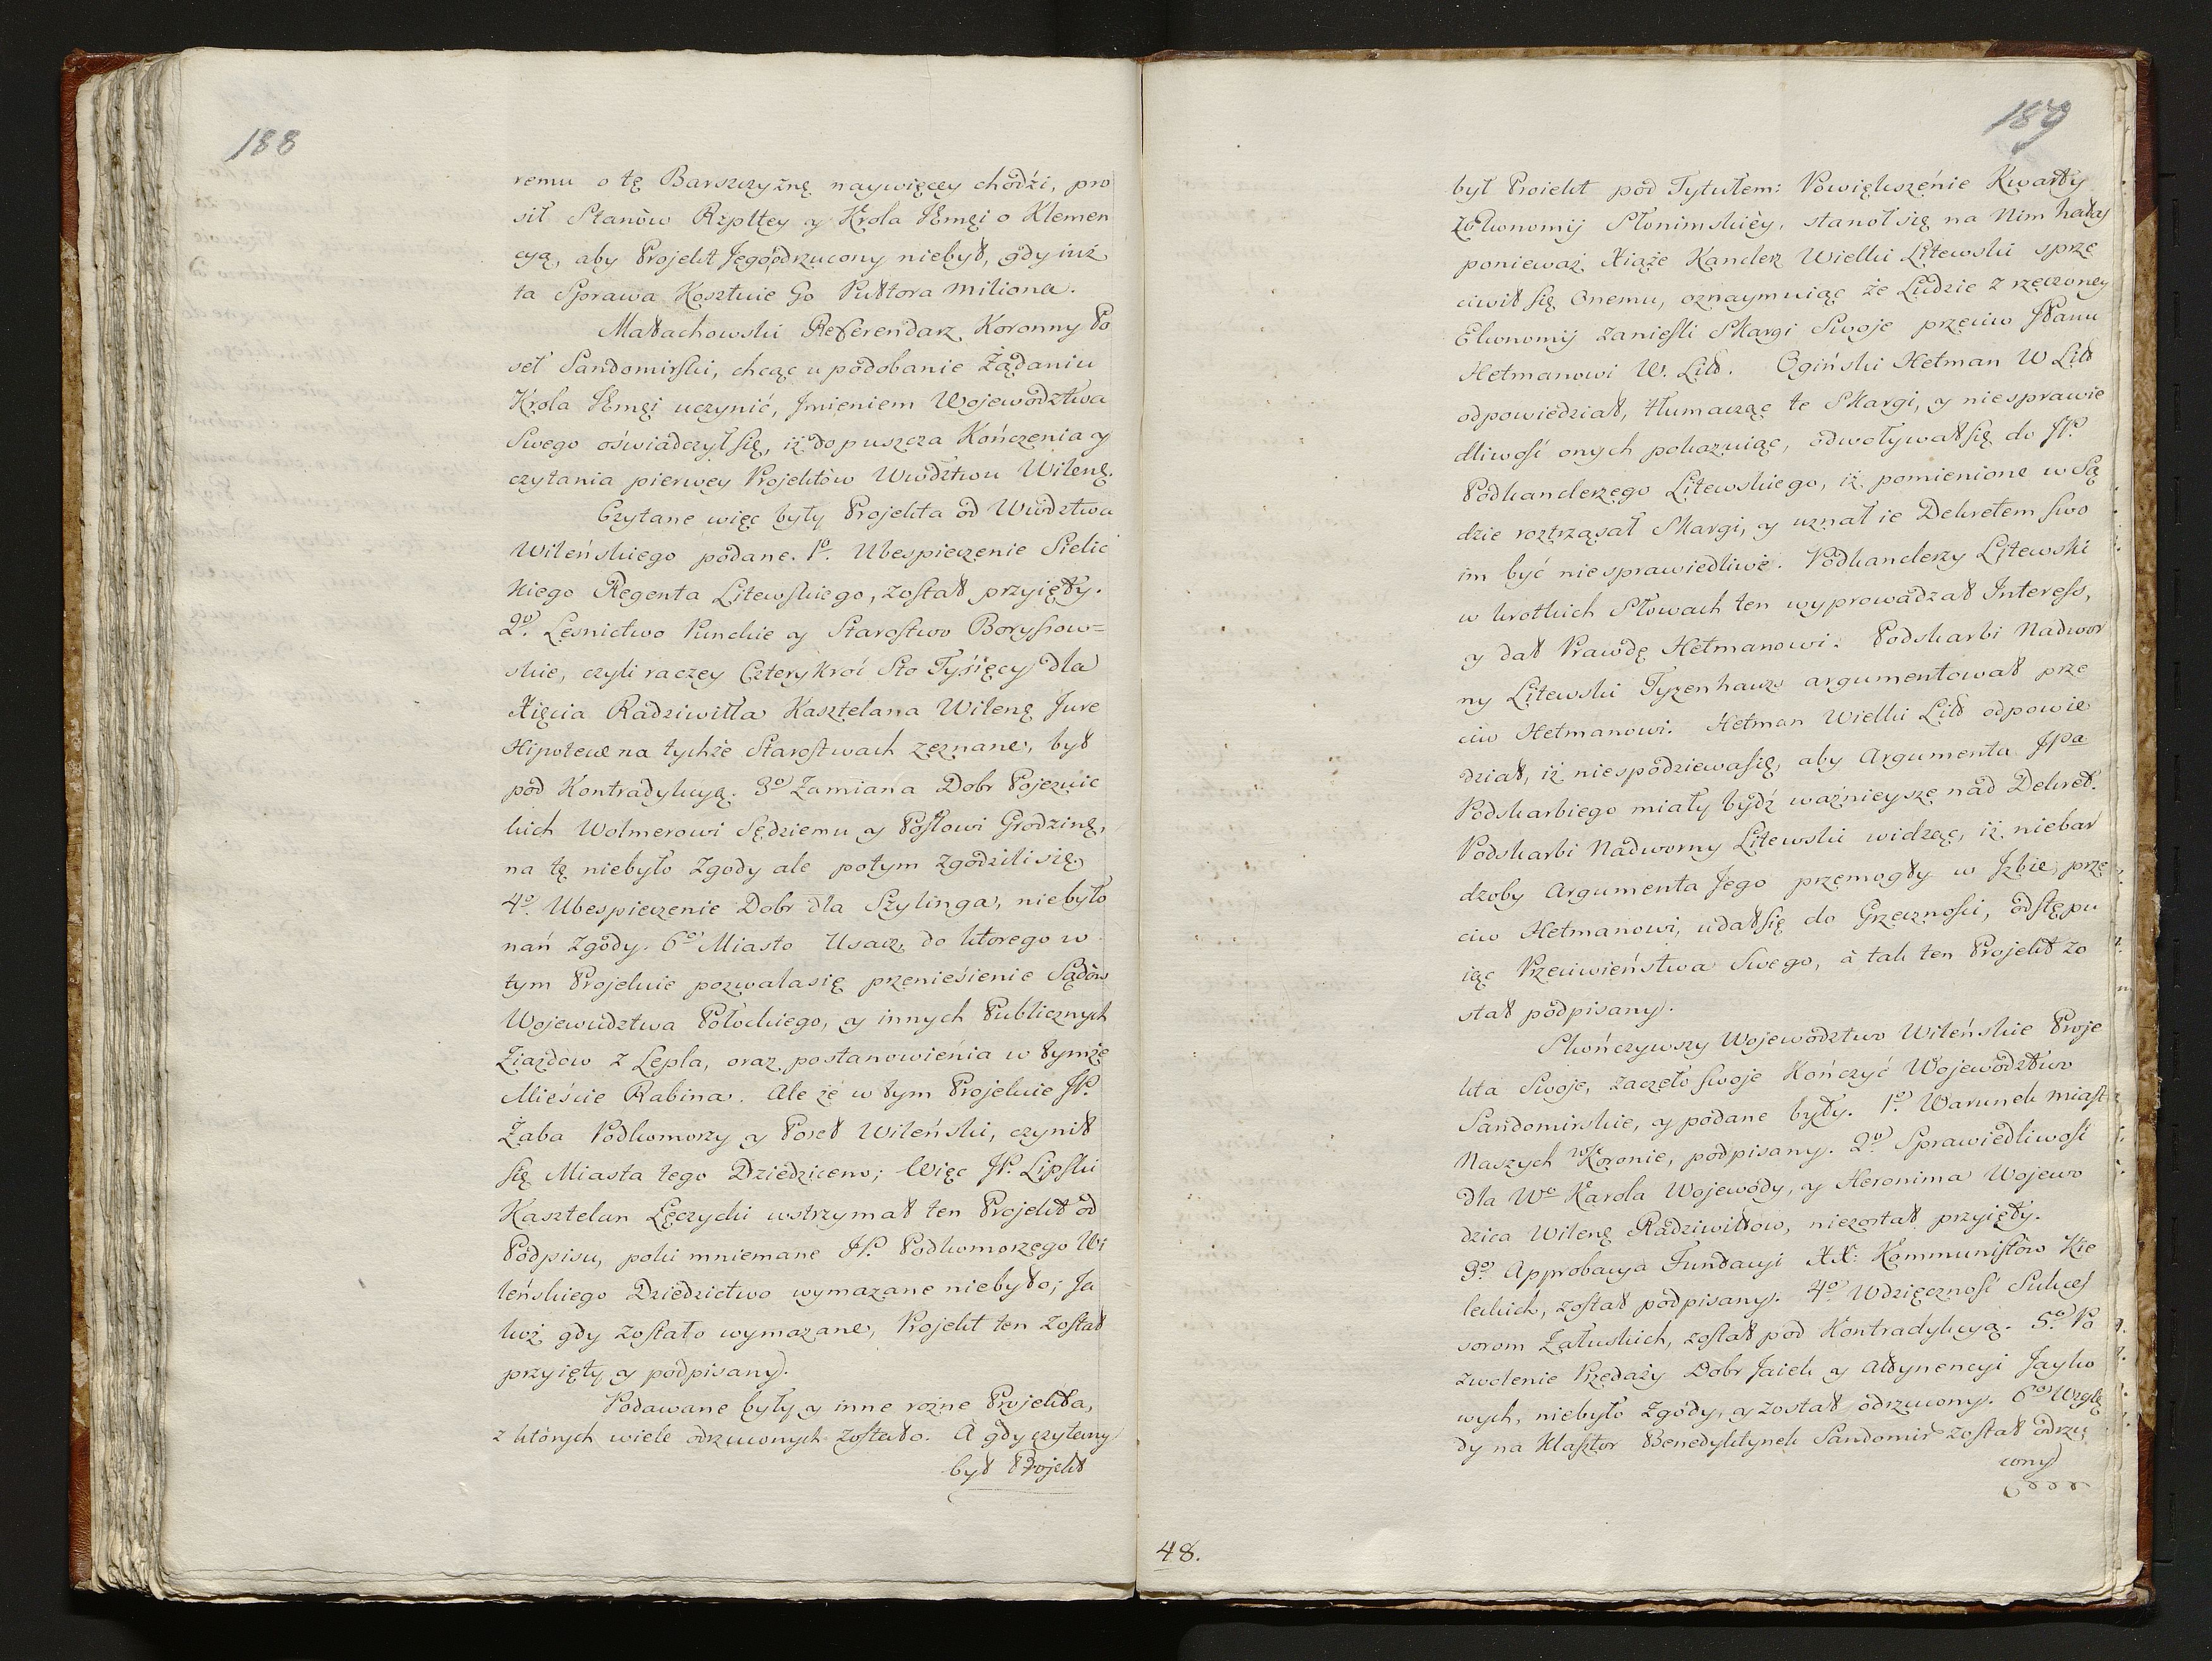 188
remu o tę Barszczyznę naywięcey chodźi, pro
sił Stanòw Rzpltey y Krola JEmęi o Klemen
cyą, aby Projekt Jego odrzucony niebył, gdy iuż
ta Sprawa Kosztuie Go Pułtora miliona.
Małachowski Referendarz Koronny Po
seł Sandomirski, chcąc upodobanie Żądaniu
Krola JEmęi uczynić, Jmieniem Wojewodztwa
Swego oświadczył się, iż dopuszcza Kończenia y
czytania pierwey Projektòw Wwdztwu Wileng.
Czytane więc były Projekta od Wwodztwa
Wileńskiego podane. 1o. Ubespieczenie Sielic
kiego Regenta Litewskiego, został przyięty.
2o. Leśnictwo Punckie y Starostwo Borysow=
skie, czyli raczey Czterykroć Sto Tyśięcy dla
Xięcia Radziwiłła Kasztelana Wileng Jure
Hipotecæ na tychże Starostwach zeznane, był
pod Kontradykcyą. 3o Zamiana Dobr Pojezuic
kich Wolmerowi Sędziemu y Posłowi Grodzing,
na tę niebyło Zgody ale potym zgodzili się,
4o. Ubespieczenie Dobr dla Szylinga, niebyło
nań Zgody. 6o Miasto Usacz, do ktorego w
tym Projekcie pozwala się przenieśienie Sądòw
Wojewudztwa Połockiego, y innych Publicznych
Ziazdow z Lepla, oraz postanowienia w tymże
Mieście Rabina. Ale że w tym Projekcie JP.
Żaba Podkomorzy y Poseł Wileński, czynił
się Miasta tego Dziedzicem; Więc JP. Lipski
Kasztelan Łęczycki wstrzymał ten Projekt od
Podpisu, poki mniemane JP. Podkomorzego Wi
leńskiego Dziedzictwo wymazane niebyło; Ja
koż gdy zostało wymazane, Projekt ten został
przyięty y podpisany.
Podawane były y inne rożne Projekta,
z ktòrych wiele odrzuconych zostało. A gdy czytany
był Projekt
189
był Proiekt pod Tytułem: Powiększenie Kwarty
z Ekonomij Słonimskiey, stanoł się na Nim hałaś
ponieważ Xiąże Kanclerz Wielki Litewski sprze
ciwił się Onemu, oznaymuiąc że Ludzie z rzeczoney
Ekonomij zanieśli Skargi Swoje przeciw JPanu
Hetmanowi W. Litt. Ogiński Hetman W Litt
odpowiedział, tłumacząc te Skargi, y niesprawie
dliwość onych pokazuiąc, odwoływał się do JP.
Podkanclerzego Litewskiego, iż pomienione w Są
dzie roztrząsał Skargi, y uznał ie Dekretem swo
im być niesprawiedliwe. Podkanclerzy Litewski
w krotkich Słowach ten wyprowadzał Interess,
y dał Prawdę Hetmanowi. Podskarbi Nadwor
ny Litewski Tyzenhauz argumentował prze
ciw Hetmanowi. Hetman Wielki Litt odpowie
dział, iż niespodziewa się, aby Argumenta JPa
Podskarbiego miały bydź ważnieysze nad Dekret.
Podskarbi Nadworny Litewski widząc, iż niebar
dzoby Argumenta Jego przemogły w Jzbie, prze
ciw Hetmanowi, udał się do Grzeczności, odstępu
iąc Przeciwieństwa Swego, à tak ten Projekt zo
stał podpisany.
Skończywszy Wojewodztwo Wileńskie Proje
kta Swoje, zaczęło swoje Kończyć Wojewodztwo
Sandomirskie, y podane były. 1o. Warunek miast
Naszych w Koronie, podpisany. 2o. Sprawiedliwość
dla Wo Karola Wojewody, y Heronima Wojewo
dzica Wileng Radziwiłłow, niezostał przyięty.
3o. Approbacya Fundacyi XX: Kommunistòw Kie
leckich, został podpisany. 4o. Wdzięczność Sukces
sorom Załuskich, został pod Kontradykcyą. 5o. Po
zwolenie Przedaży Dobr Jaiek y Attynencyi Jayko
wych, niebyło Zgody, y został odrzucony. 6o Wzglę
dy na Klasztor Benedyktynek Sandomir został odrzu
cony
48.